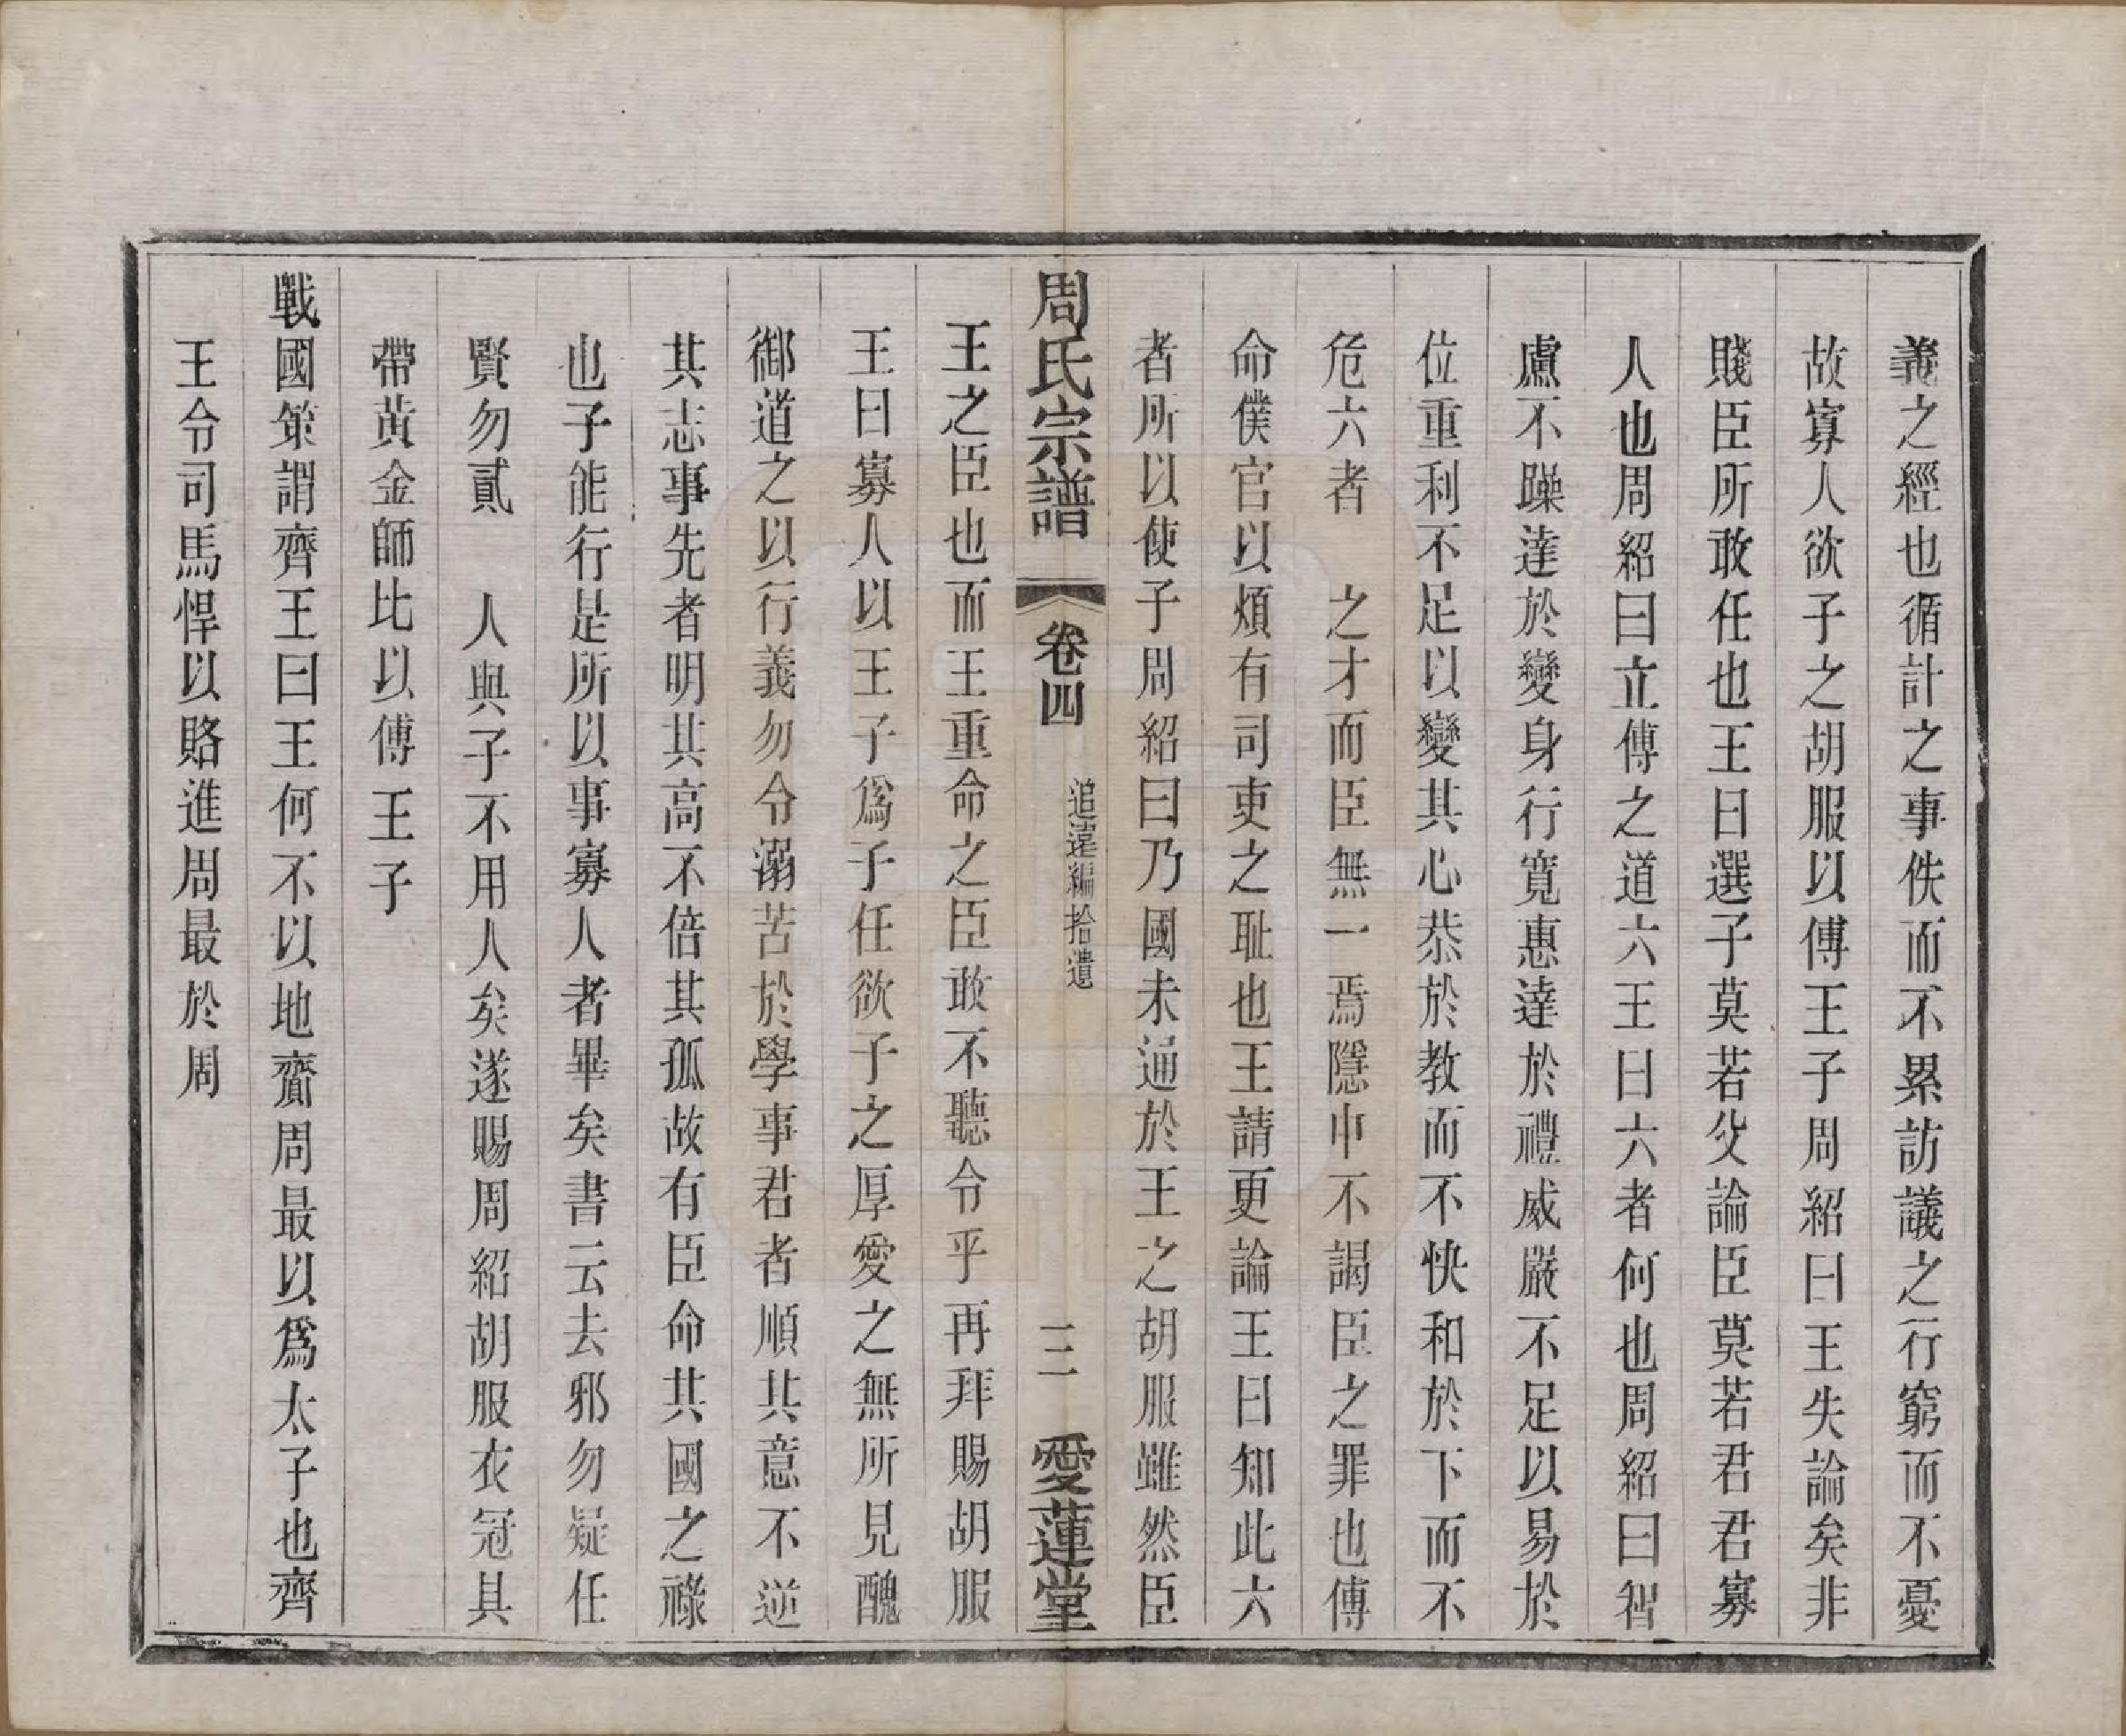 義之經也循計之事佚而不累訪議之行窮而不憂
故寡人欲子之胡服以傅王子周紹曰王失論矣非
賤臣所敢任也王曰選子莫若父論臣莫若君君寡
人也周紹曰立傅之道六王曰六者何也周紹曰智
慮不躁達於變身行寬惠達於禮威嚴不足以易於
位重利不足以變其心恭於教而不快和於下而不
危六者 之才而臣無一焉隱中不謁臣之罪也傅
命僕官以煩有司吏之耻也王請更論王曰知此六
者所以使子周紹曰乃國未通於王之胡服雖然臣
周氏宗譜 卷四 追遠編拾遺 三 愛蓮堂
王之臣也而王重命之臣敢不聽令乎再拜賜胡服
王曰寡人以王子爲子任欲子之厚愛之無所見醜
御道之以行義勿令溺苦於學事君者順其意不逆
其志事先者明其高不倍其孤故有臣命其國之祿
也子能行是所以事寡人者畢矣書云去邪勿疑任
賢勿貳 人與子不用人矣遂賜周紹胡服衣冠具
帶黃金師比以傅王子
戰國策謂齊王曰王何不以地齎周最以爲太子也齊
王令司馬悍以賂進周最於周